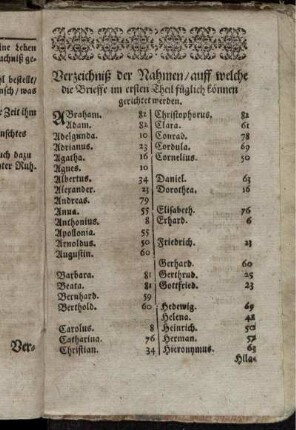 ine Leben
achniß ge-
hl bestelle/
nsch/ was
e Zeit ihm
nschtes
uch dazu
nter Ruh.
Ver-
Verzeichniß der Nahmen/ auff welche
die Brieffe im ersten Theil füglich können
gerichtet werden.
ABraham. 82
Adam. 82
Adelgunda. 10
Adrianus. 23
Agatha. 16
Agnes. 10
Albertus. 34
Alexander. 23
Andreas. 79
Anna. 55
Anthonius. 8
Apollonia. 55
Arnoldus. 50
Augustin. 60
Barbara. 81
Beata. 81
Bernhard. 59
Berthold. 60
Carolus. 8
Catharina. 76
Christian. 34
Christophorus. 82
Clara. 61
Conrad. 78
Cordula. 69
Cornelius. 50
Daniel. 63
Dorothea. 16
Elisabeth. 76
Erhard. 6
Friedrich. 23
Gerhard. 60
Gerthrud. 25
Gottfried. 23
Hedewig. 69
Helena. 48
Heinrich. 50
Herman. 57
Hieronymus. 63
Hila-